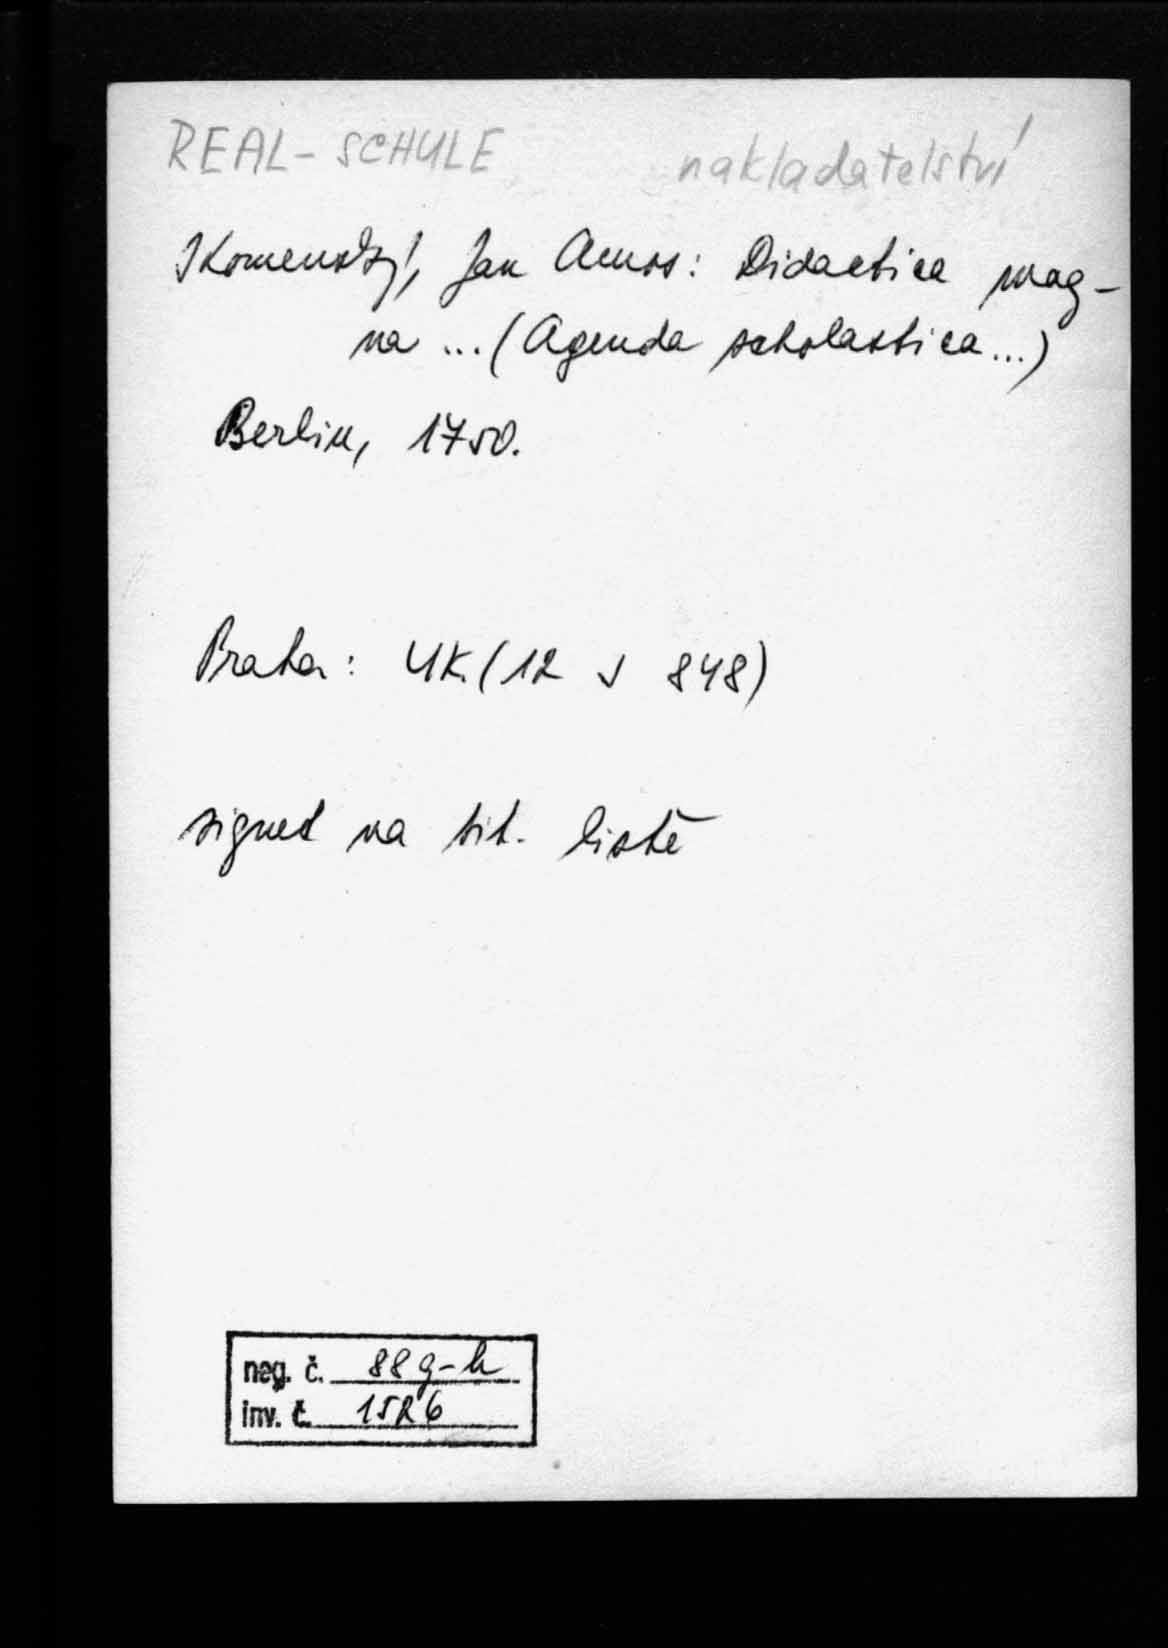 REAL-SCHULE nakladatelství
Komenský, Jan Amos: Didactica mag-
na ... (Agenda scholastica...)
Berlin, 1750.
Praha: UK (12 J 848)
signet na tit. listě
neg. č. 88 g-h
inv. č. 1526